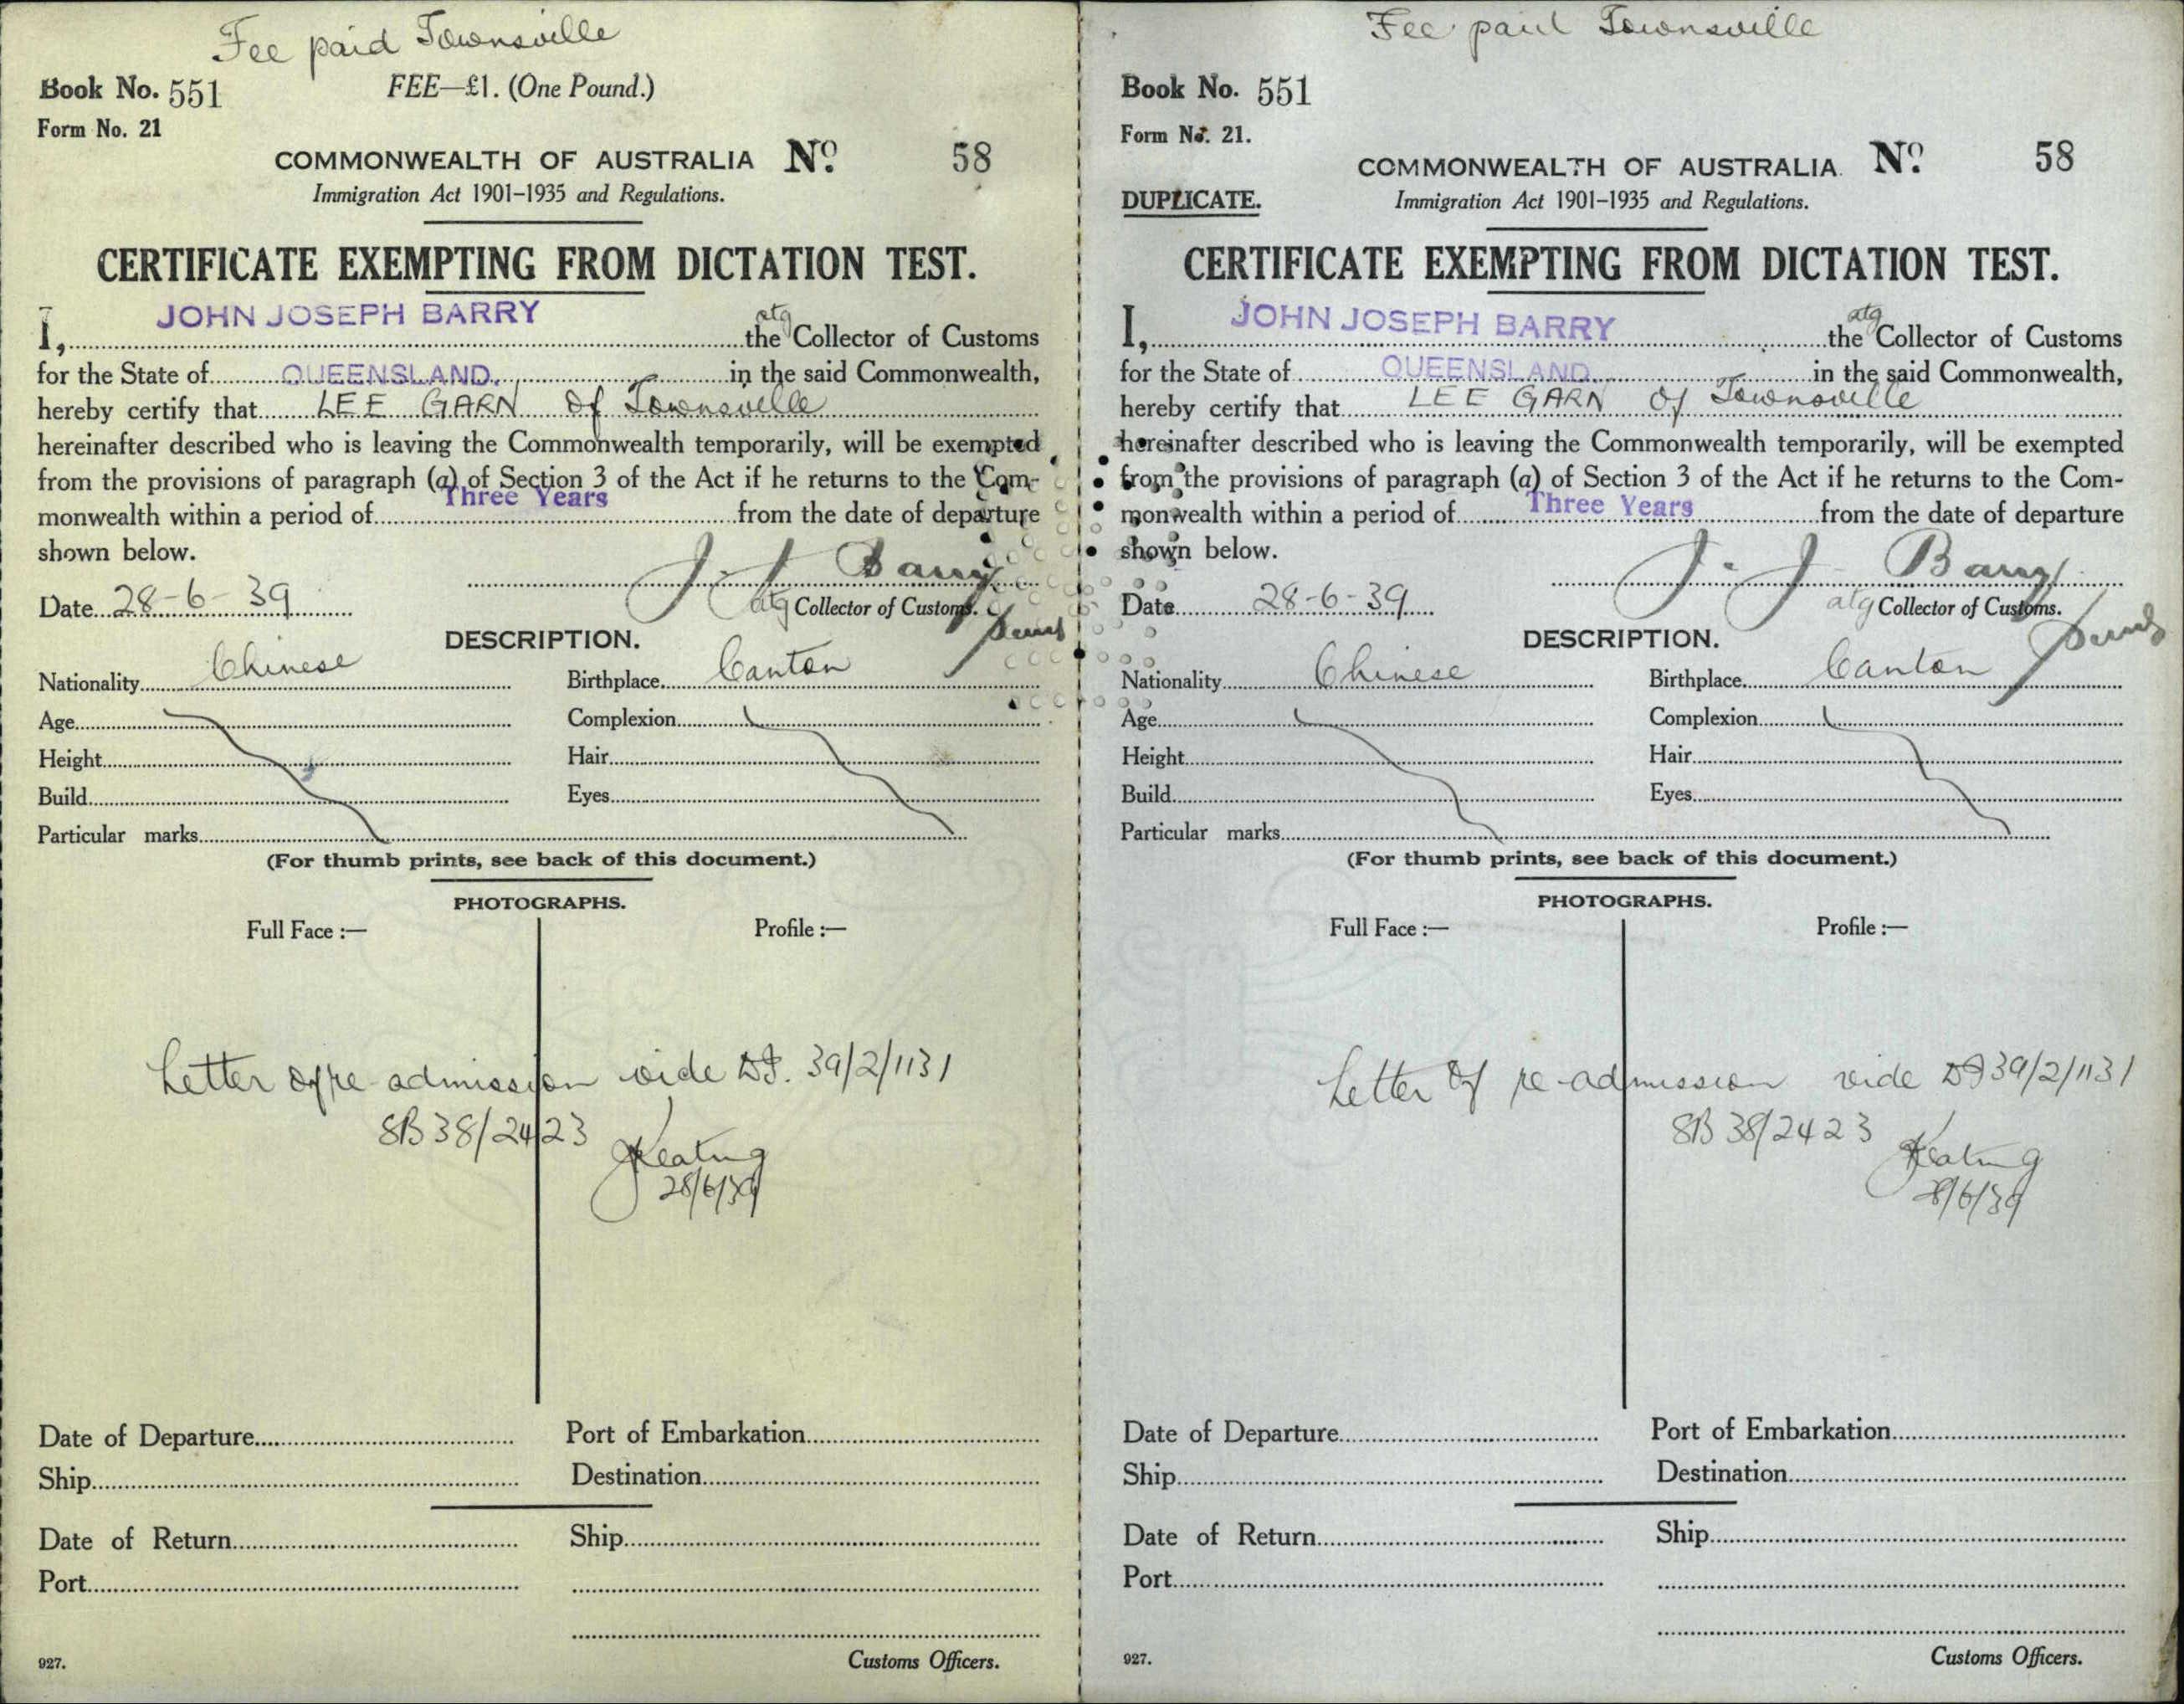 Fee paid Townsville
Book No. 551
FEE—£1. (One Pound.)
Form No. 21
COMMONWEALTH OF AUSTRALIA No. 58
Immigration Act 1901–1935 and Regulations.
CERTIFICATE EXEMPTING FROM DICTATION TEST.
I, JOHN JOSEPH BARRY the atg Collector of Customs
for the State of QUEENSLAND. in the said Commonwealth,
hereby certify that LEE GARN of Townsville
hereinafter described who is leaving the Commonwealth temporarily, will be exempted
from the provisions of paragraph (a) of Section 3 of the Act if he returns to the Com-
monwealth within a period of Three Years from the date of departure
shown below.
J. J. Barry
Date 28-6-39
atg Collector of Customs.
DESCRIPTION.
Nationality Chinese Birthplace Canton
Age Complexion
Height Hair
Build Eyes
Particular marks
(For thumb prints, see back of this document.)
PHOTOGRAPHS.
Full Face :— Profile :—
Letter of re-admission vide DJ. 39/2/1131
SB 38/2423
JKeating
28/6/39
Date of Departure Port of Embarkation
Ship Destination
Date of Return Ship
Port
927. Customs Officers.
Fee paid Townsville
Book No. 551
Form No. 21.
COMMONWEALTH OF AUSTRALIA. No. 58
DUPLICATE. Immigration Act 1901–1935 and Regulations.
CERTIFICATE EXEMPTING FROM DICTATION TEST.
I, JOHN JOSEPH BARRY the atg Collector of Customs
for the State of QUEENSLAND. in the said Commonwealth,
hereby certify that LEE GARN of Townsville
hereinafter described who is leaving the Commonwealth temporarily, will be exempted
from the provisions of paragraph (a) of Section 3 of the Act if he returns to the Com-
monwealth within a period of Three Years from the date of departure
shown below.
J. J. Barry
Date 28-6-39
atg Collector of Customs.
DESCRIPTION.
Nationality Chinese Birthplace Canton
Age Complexion
Height Hair
Build Eyes
Particular marks
(For thumb prints, see back of this document.)
PHOTOGRAPHS.
Full Face :— Profile :—
Letter of re-admission vide DJ 39/2/1131
SB 38/2423
JKeating
28/6/39
Date of Departure Port of Embarkation
Ship Destination
Date of Return Ship
Port
927. Customs Officers.